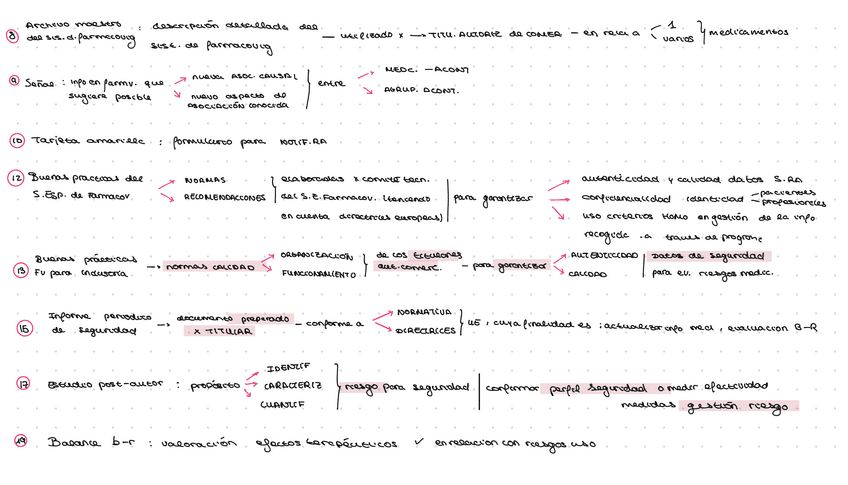 8 Archivo maestro : descripción detallada del
del sis.d.farmacovig sist. de farmacovig — utilizado x → TITU. AUTORIZ DE COMER — en relci a 1 varios } medicamentos
9 Señal : info en farmv. que → nueva ASOC. CAUSAL } entre → MEDC. — ACONT
sugiera posible → nuevo aspecto de ASOCIACIÓN conocida → AGRUP. ACONT.
10 Tarjeta amarilla : formulario para NOTIF.RA
12 Buenas practicas del → NORMAS elaboradas x comité tecn. → autenticidad y calidad datos S.RA
S.ESP. de Farmacov. → RECOMENDACIONES del S.E.Farmacov. (teniendo para garantizar → confidencialidad identidad — pacientes — profesionales
en cuenta directrices europeas) → uso criterios HOMO en gestión de la info
recogida a traves de programa
13 Buenas prácticas → normas CALIDAD → ORGANIZACIÓN } de los titulares — para garantizar → AUTENTICIDAD | Datos de seguridad
FV para Industria → FUNCIONAMIENTO aut.comerc. → CALIDAD para ev. riesgos medic.
15 Informe periodico → documento preparado — conforme a → NORMATIVA } UE, cuya finalidad es : actualizar info medi, evaluacion B-R
de seguridad x TITULAR → DIRECTRICES
17 Estudio post-autor : propósito → IDENTIF
→ CARACTERIZ } riesgo para seguridad | confirmar perfil seguridad o medir efectividad
→ CUANTIF medidas gestión riesgo
19 Balance b-r : valoración efectos terapéuticos ✓ en relacion con riesgos uso